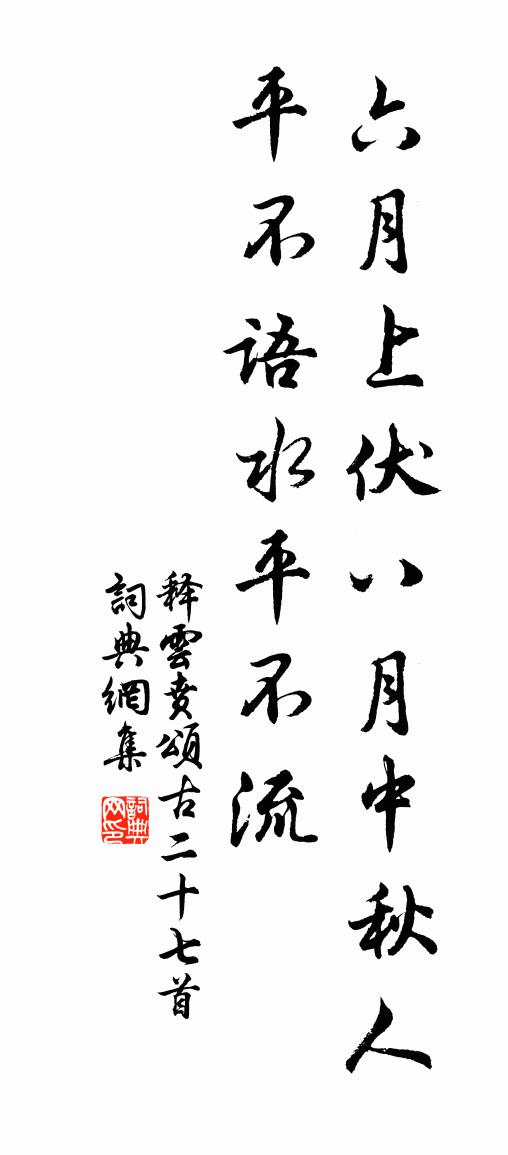 六月上伏八月中秋人
平不语水平不流
释雲賁頌古二十七首
詞典網集
詞典
网印